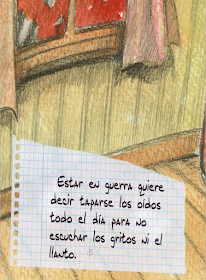 Estar en guerra quiere
decir taparse los oídos
todo el día para no
escuchar los gritos ni el
llanto.